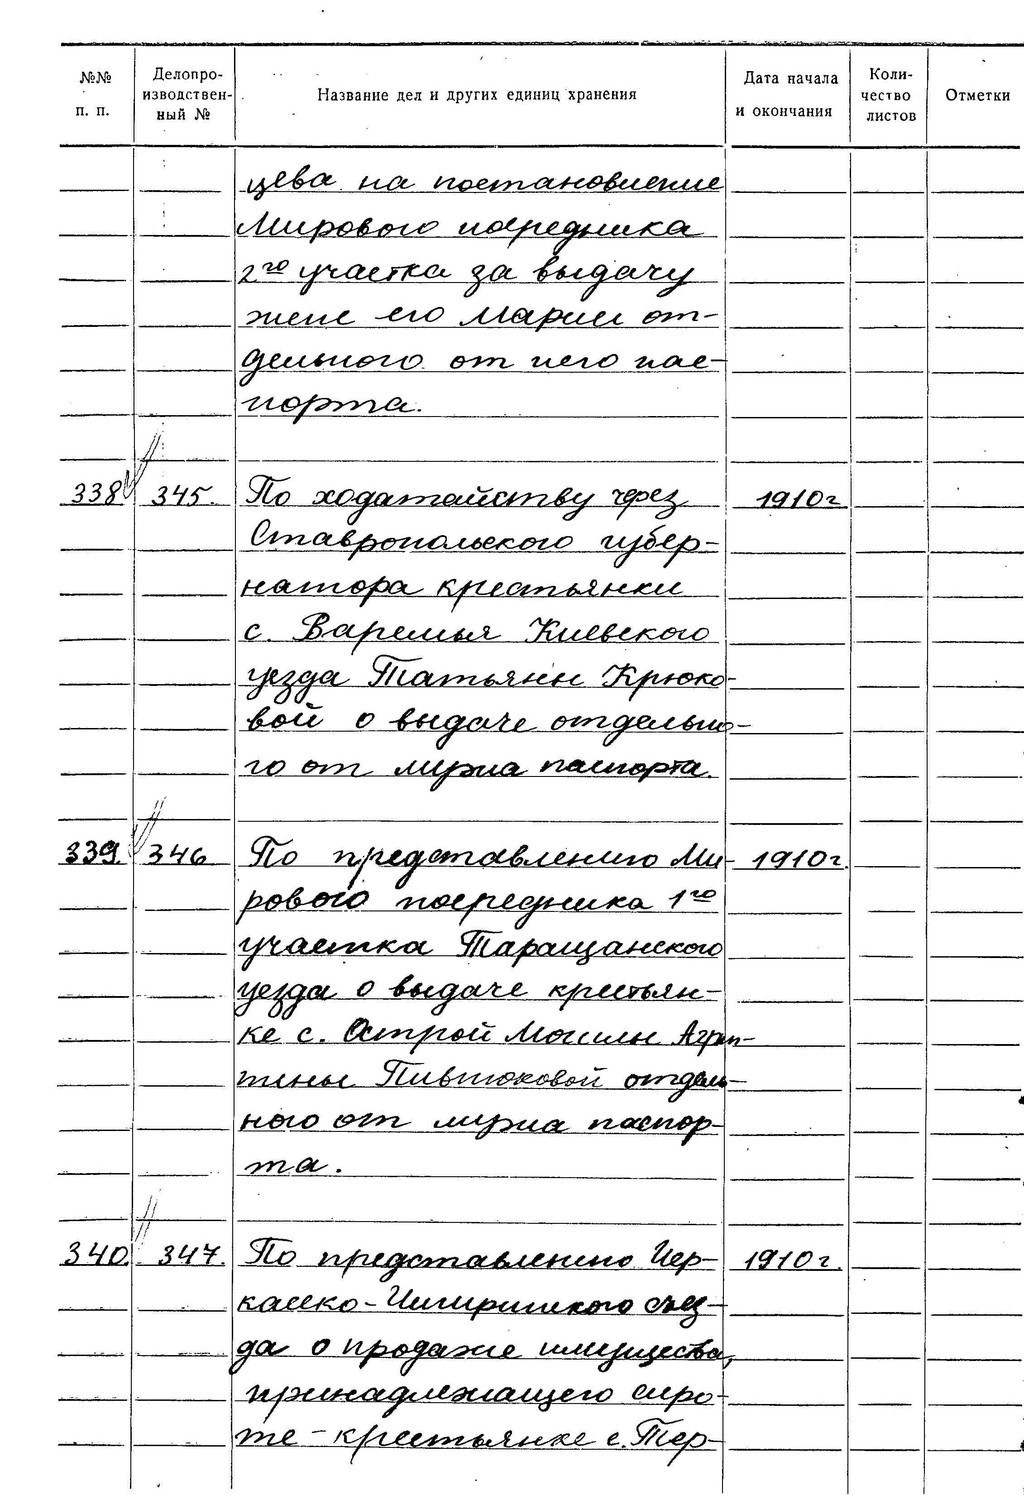 №№ п. п. Делопроизводственный № Название дел и других единиц хранения Дата начала и окончания Количество листов Отметки
цева на постановление
Мирового посредника
2го участка за выдачу
жене его Марии от-
дельного от него пас-
порта.
338 345. По ходатайству через 1910г
Ставропольского губер-
натора крестьянки
с. Варемья Киевского
уезда Татьяны Крюко-
вой о выдаче отдельно-
го от мужа паспорта.
339. 346 По представлению Ми- 1910г.
рового посредника 1го
участка Таращанского
уезда о выдаче крестьян-
ке с. Острой Могилы Агрип-
пины Пивтоковой отдель-
ного от мужа паспор-
та.
340. 347. По представлению Чер- 1910г.
касско-Чигиринского съез-
да о продаже имущества,
принадлежащего сиро-
те-крестьянке с. Тер-